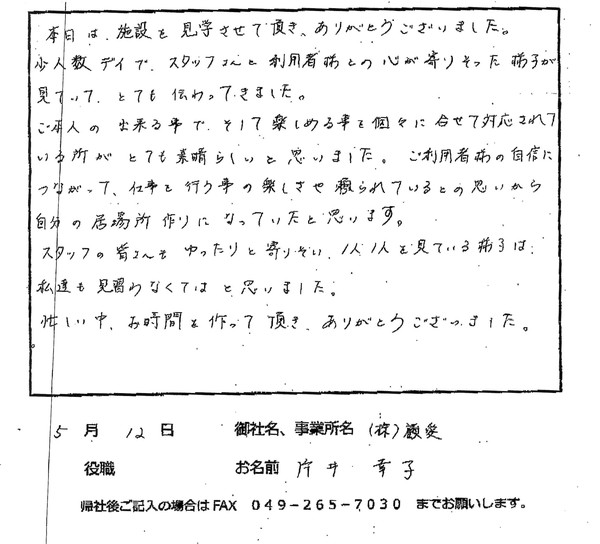 本日は、施設を見学させて頂き、ありがとうございました。
少人数デイで、スタッフさんと利用者様との心が寄りそった様子が
見ていて、とても伝わってきました。
ご本人の出来る事で、そして楽しめる事を個々に合せて対応されて
いる所がとても素晴らしいと思いました。ご利用者様の自信に
つながって、仕事を行う事の楽しさせ得られているとの思いから
自分の居場所作りになっていたと思います。
スタッフの皆さんもゆったりと寄りそい、1人1人を見ている様子は、
私達も見習わなくてはと思いました。
忙しい中、お時間を作って頂き、ありがとうございました。
5月12日 御社名、事業所名 (株)厳愛
役職 お名前 片井 幸子
帰社後ご記入の場合はFAX 049-265-7030 までお願いします。